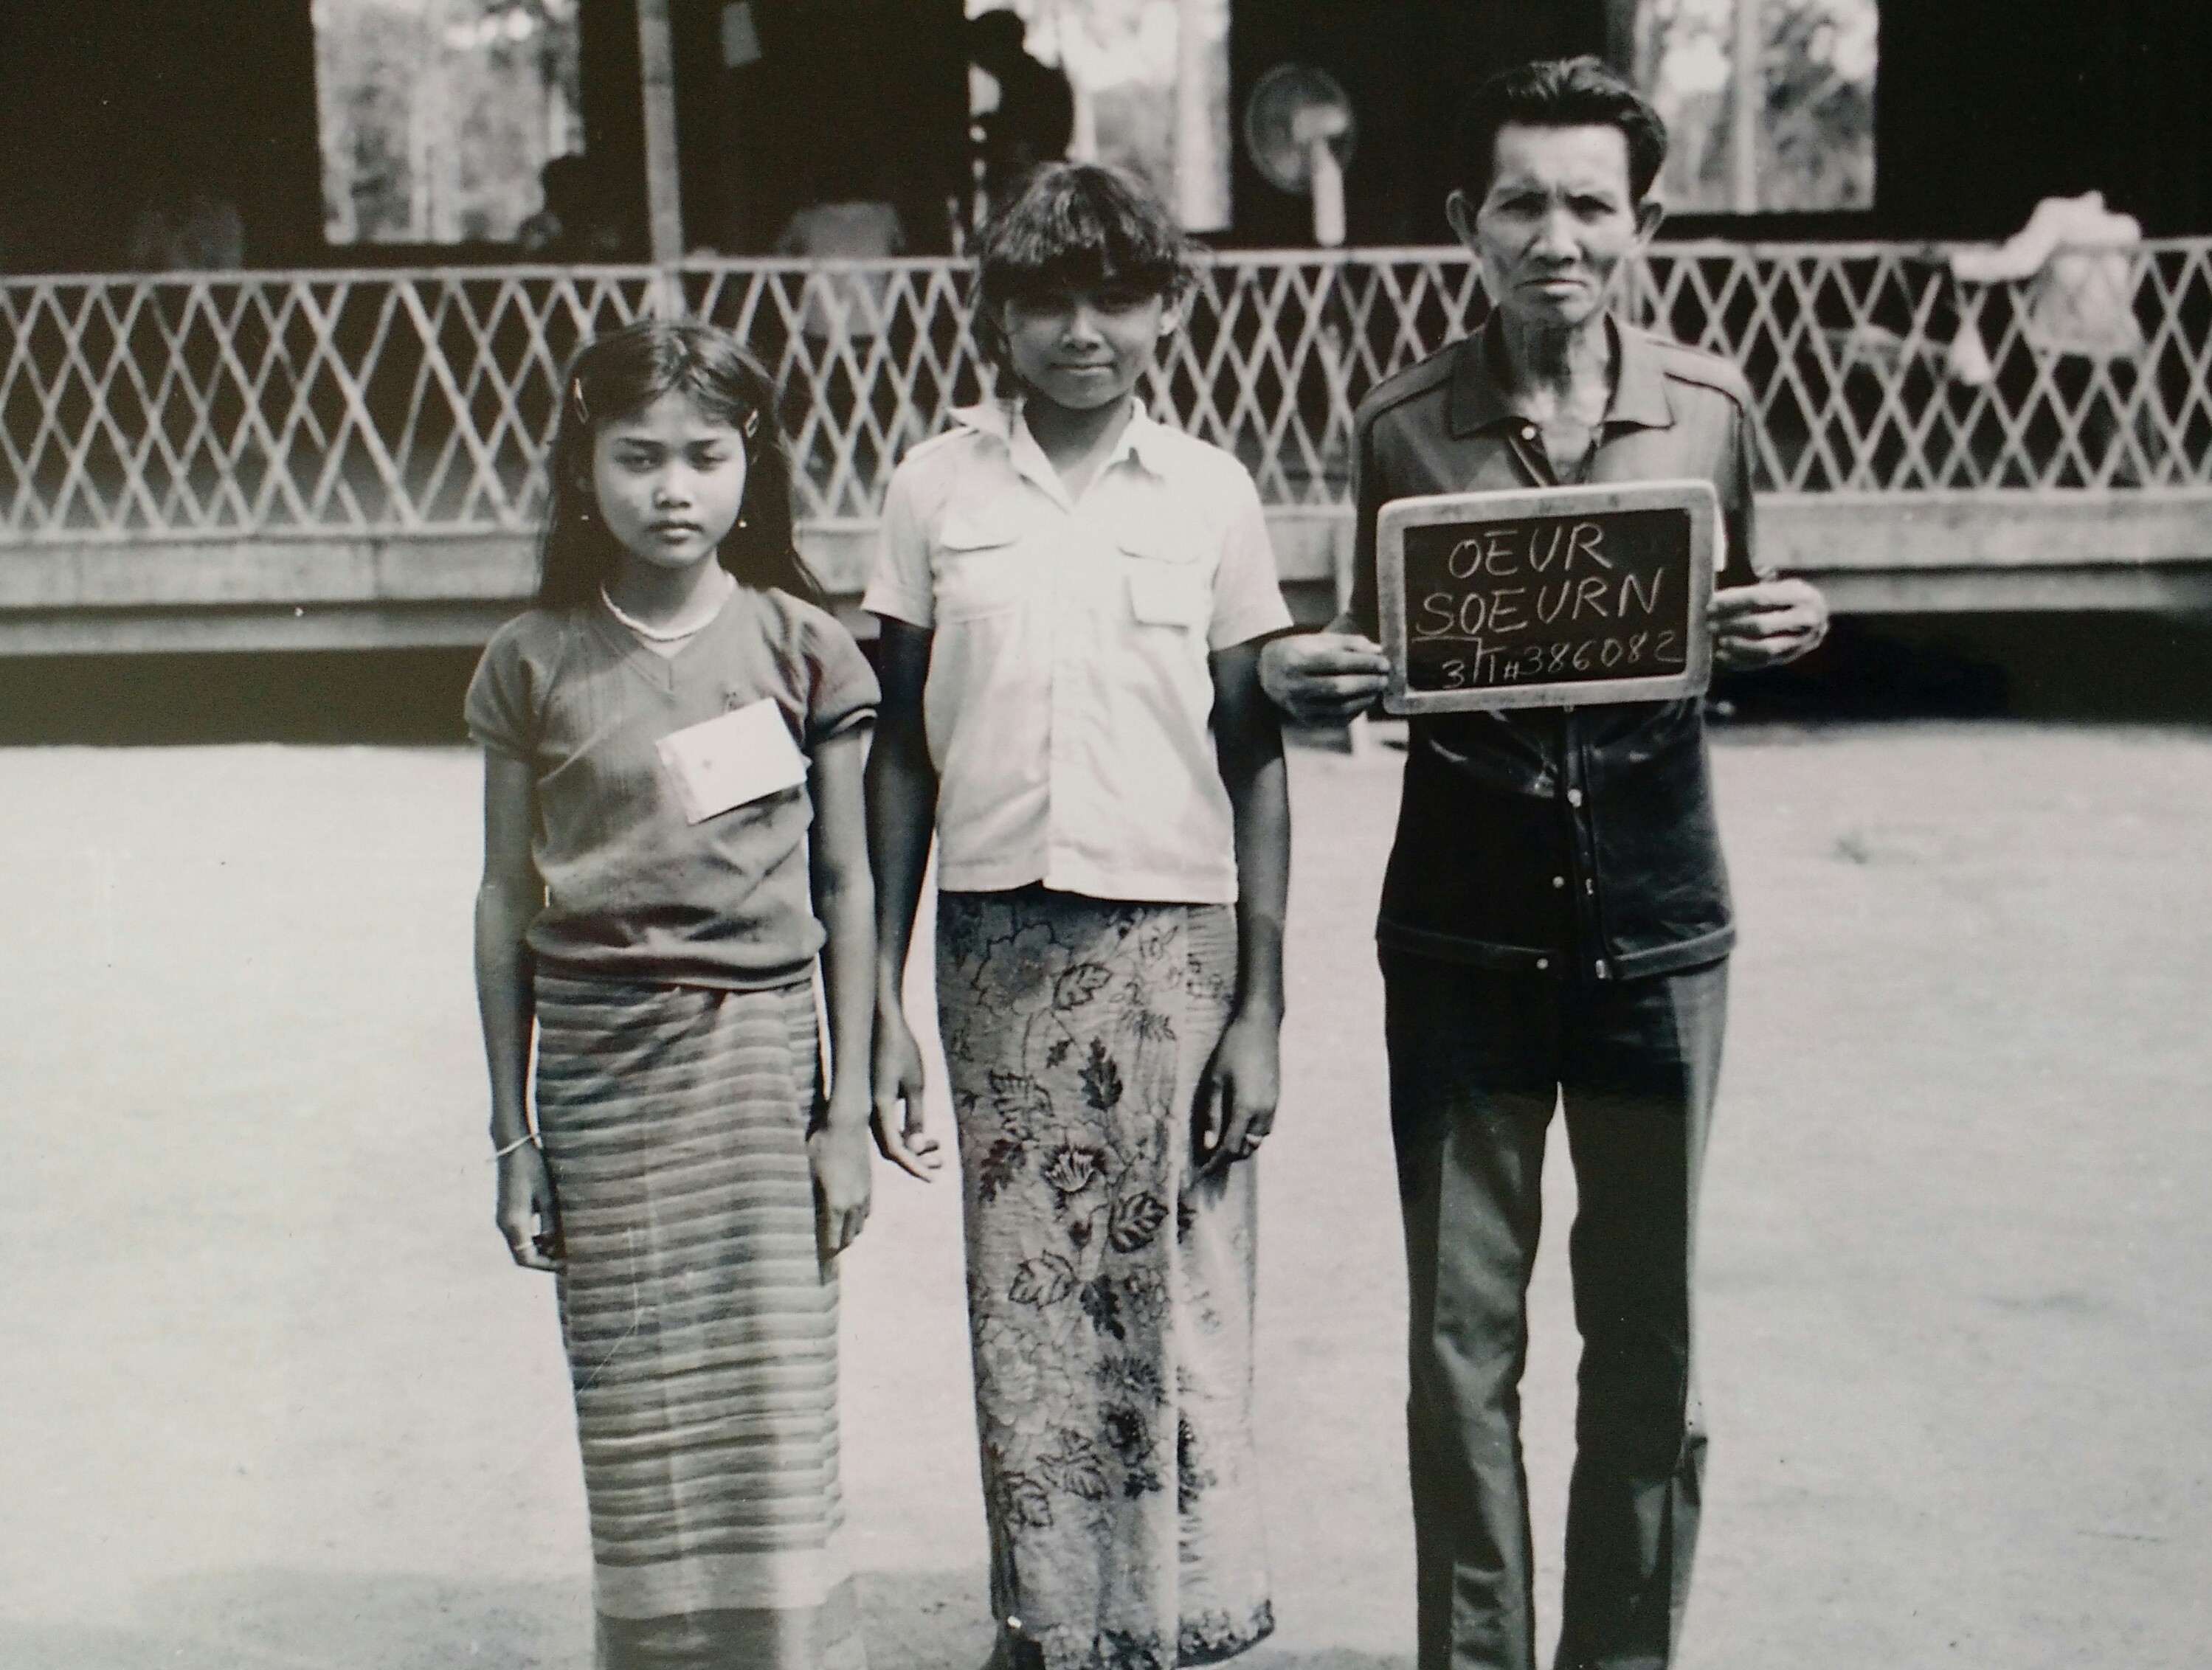 OEUR
SOEURN
3 T#386082